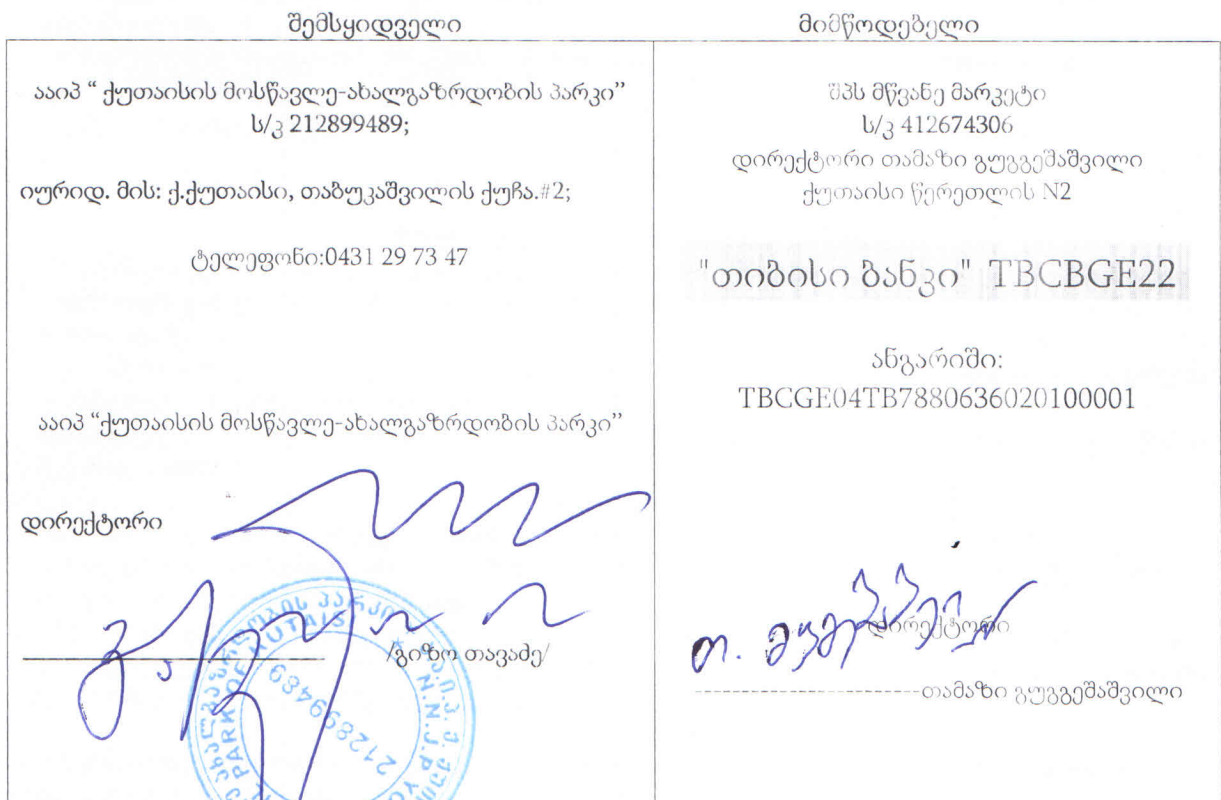 შემსყიდველი
მიმწოდებელი
ააიპ “ ქუთაისის მოსწავლე-ახალგაზრდობის პარკი”
ს/კ 212899489;
იურიდ. მის: ქ.ქუთაისი, თაბუკაშვილის ქუჩა.#2;
ტელეფონი:0431 29 73 47
ააიპ “ქუთაისის მოსწავლე-ახალგაზრდობის პარკი”
დირექტორი
/გიზო თავაძე/
212899489
შპს მწვანე მარკეტი
ს/კ 412674306
დირექტორი თამაზი გუგგემაშვილი
ქუთაისი წერეთლის N2
"თიბისი ბანკი" TBCBGE22
ანგარიში:
TBCGE04TB7880636020100001
დირექტორი
--------------------თამაზი გუგგემაშვილი